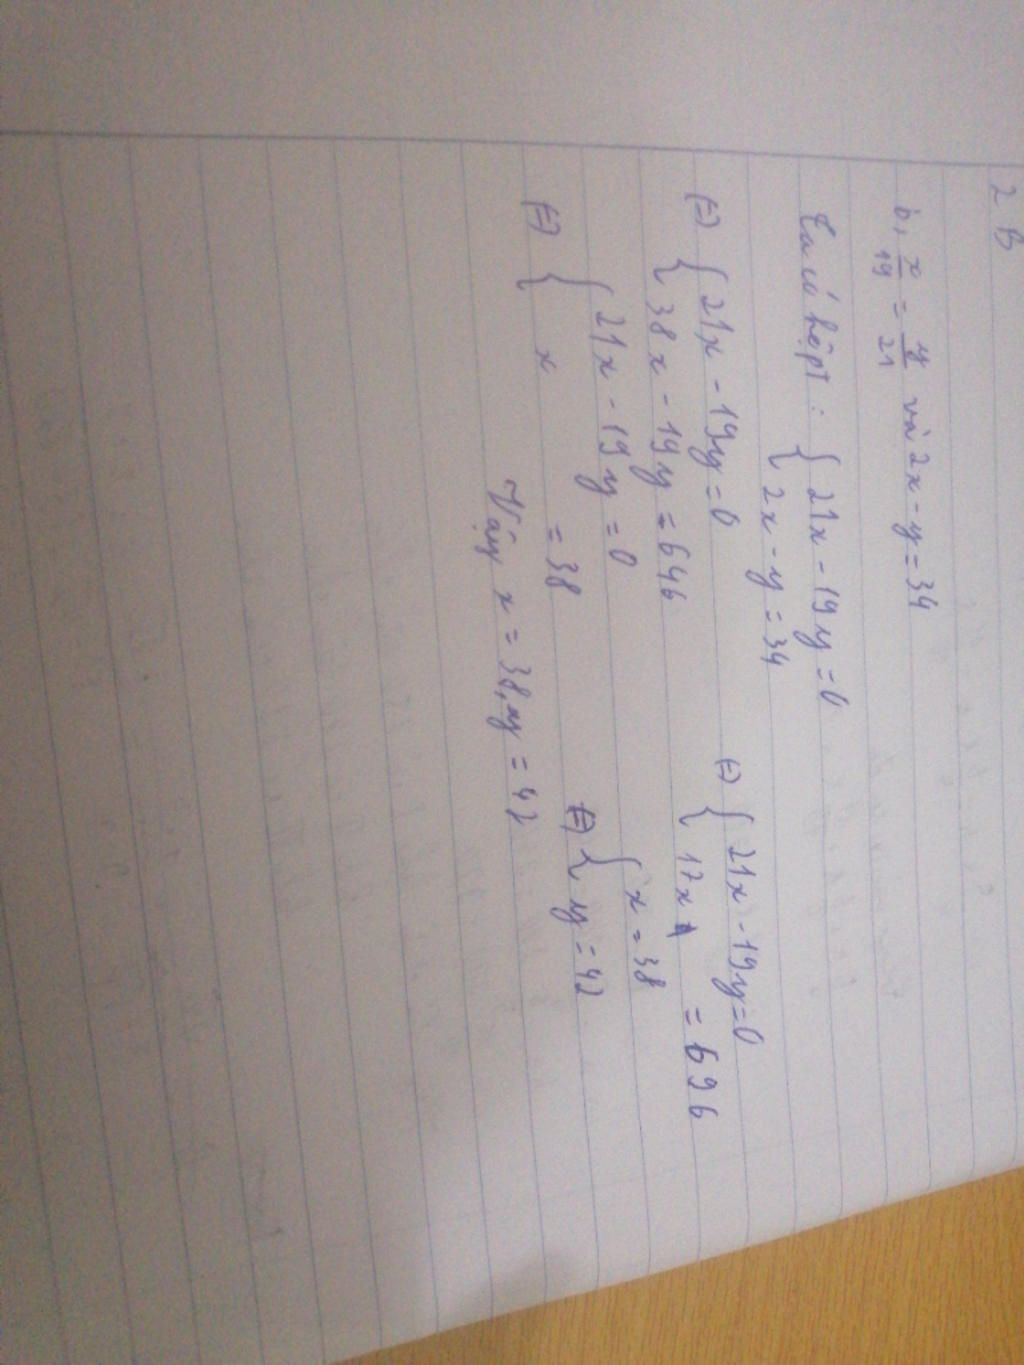 2 B
b, x/19 = y/21 và 2x - y = 34
Ta có hệ pt : { 21x - 19y = 0
2x - y = 34
(=) { 21x - 19y = 0
38x - 19y = 646
(=) { 21x - 19y = 0
17x = 646
(=) { 21x - 19y = 0
x = 38
(=) { x = 38
y = 42
Vậy x = 38, y = 42